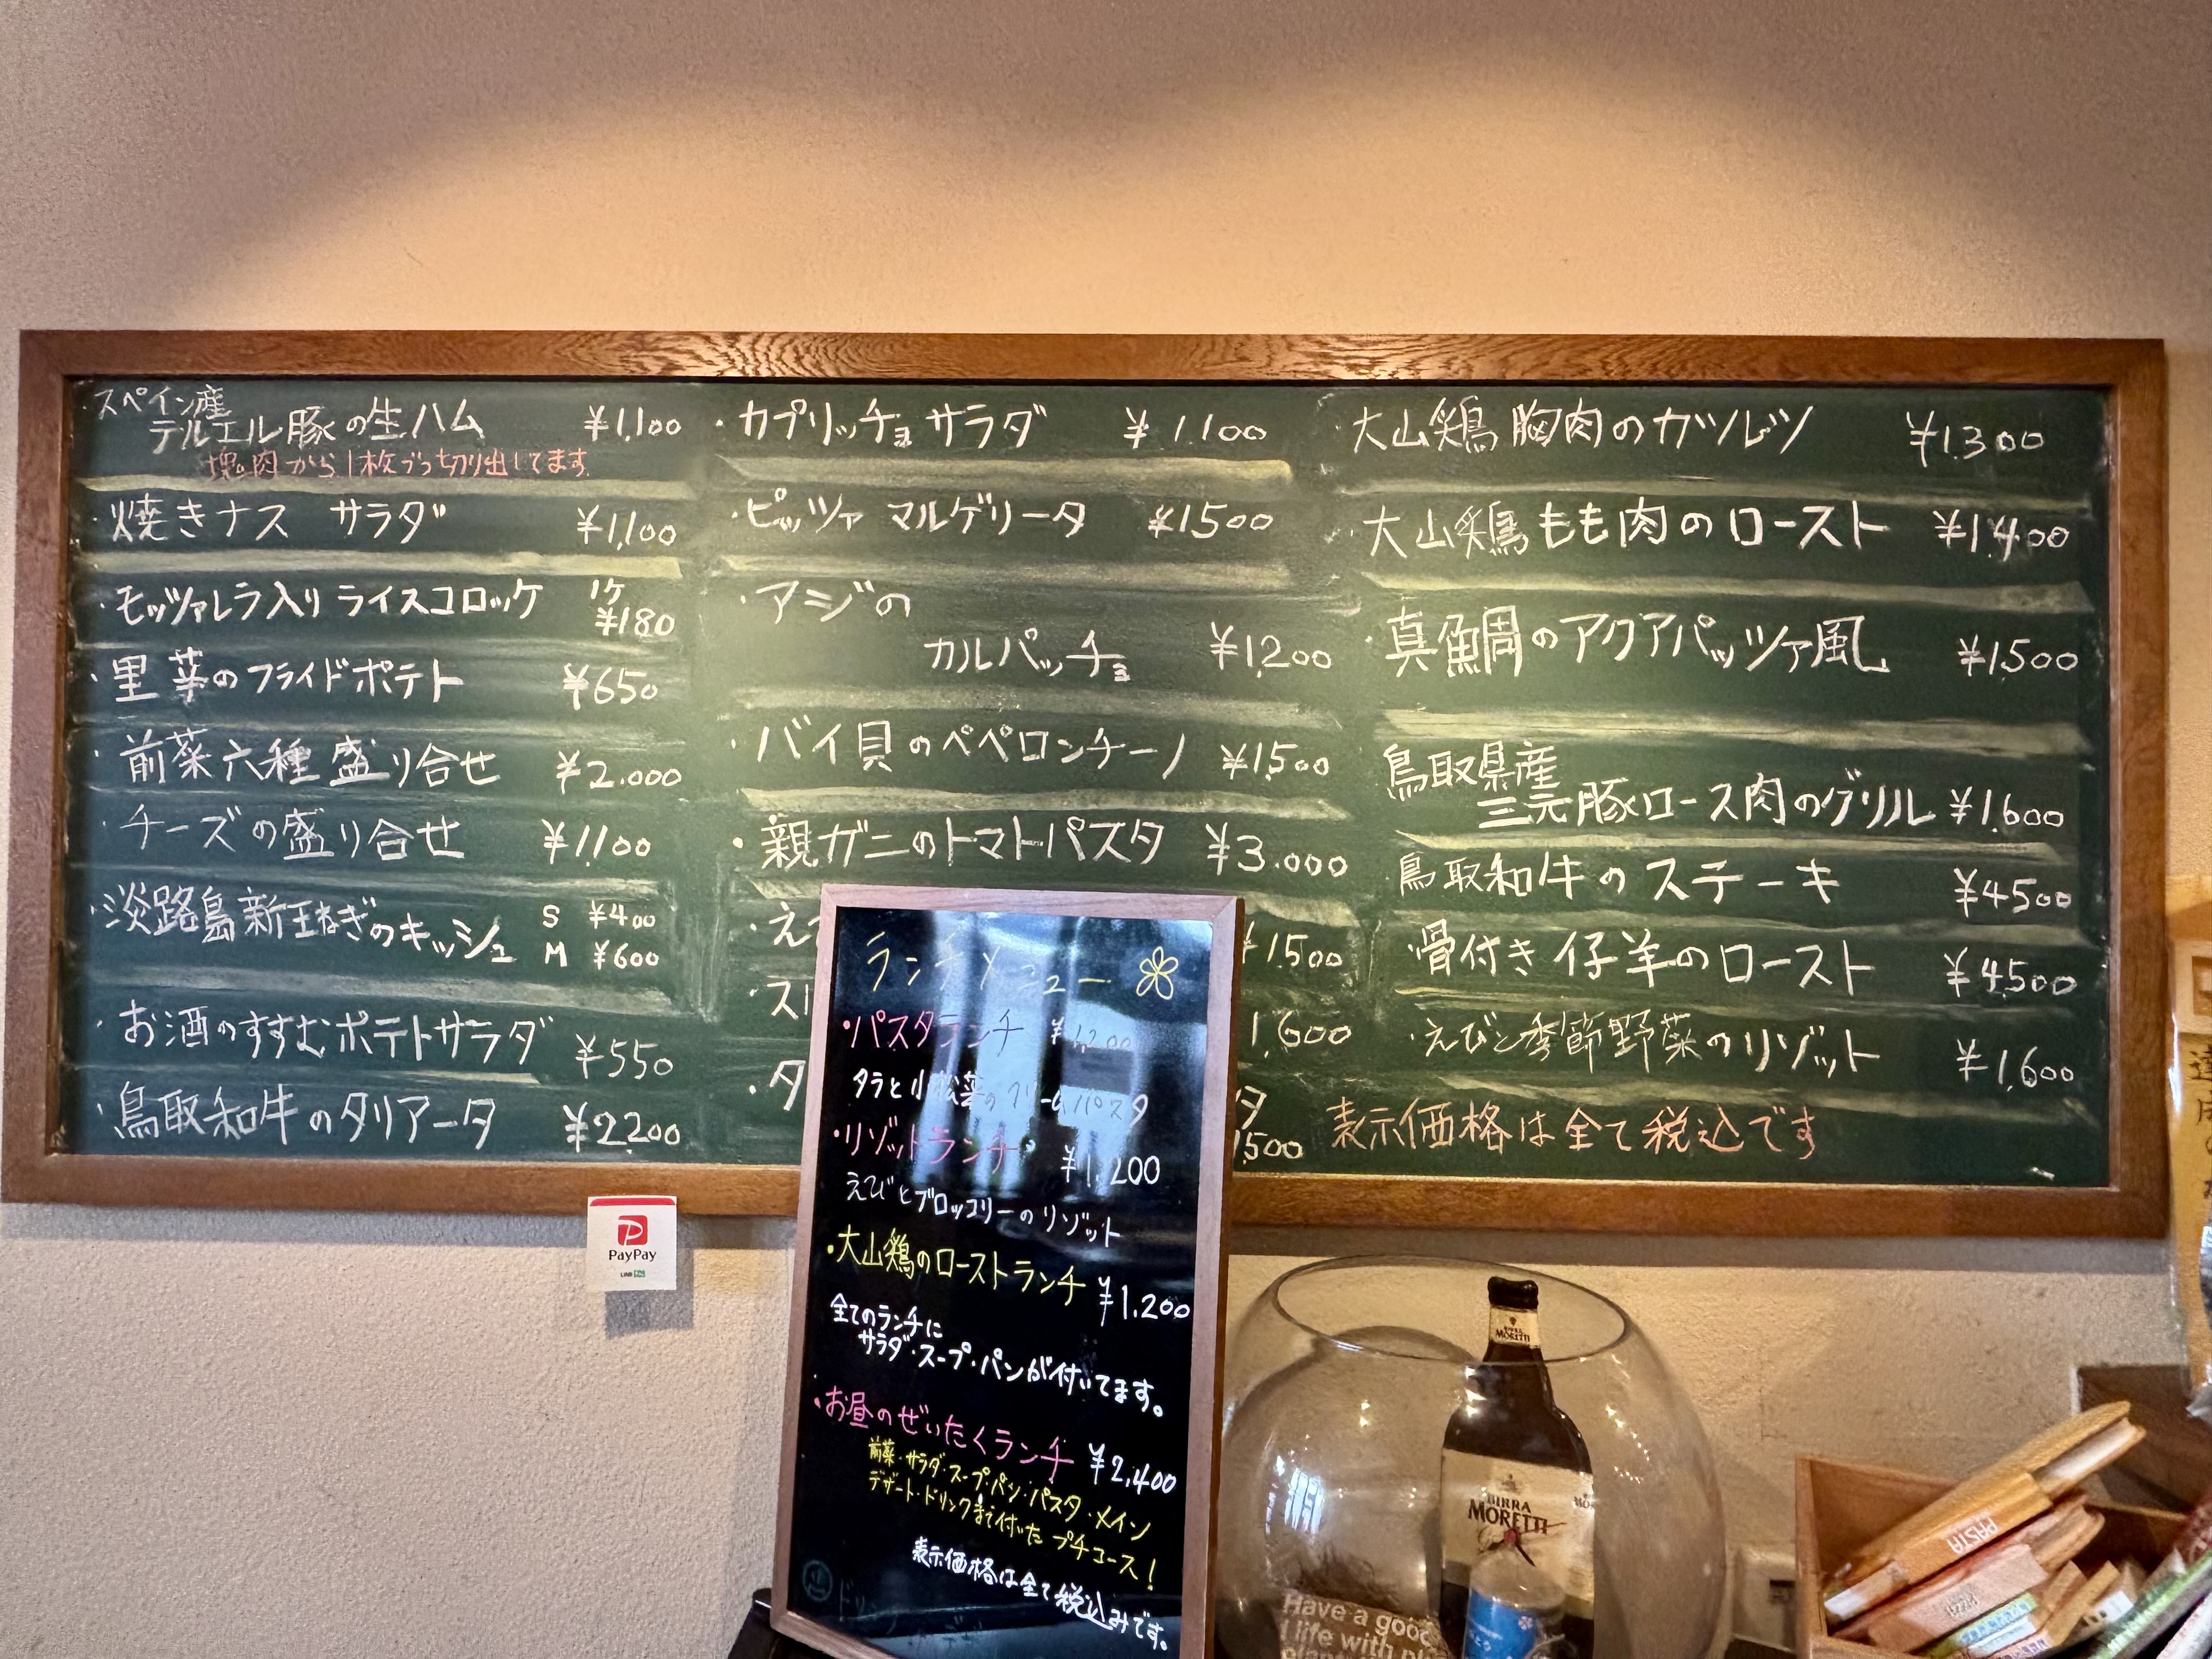 ・スペイン産
テルエル豚の生ハム ¥1,100
塊肉から1枚づつ切り出してます
・焼きナス サラダ ¥1,100
・モッツァレラ入り ライスコロッケ 1ケ ¥180
・里芋のフライドポテト ¥650
・前菜六種盛り合せ ¥2.000
・チーズの盛り合せ ¥1,100
・淡路島新玉ねぎのキッシュ S ¥400
M ¥600
・お酒のすすむポテトサラダ ¥550
・鳥取和牛のタリアータ ¥2,200
・カプリッチョサラダ ¥1.100
・ピッツァ マルゲリータ ¥1500
・アジの
カルパッチョ ¥1,200
・バイ貝のペペロンチーノ ¥1,500
・親ガニのトマトパスタ ¥3.000
・え
¥1.500
・ス
1,600
・タ
タ
1,500
・大山鶏 胸肉のカツレツ ¥1,300
・大山鶏もも肉のロースト ¥1,400
・真鯛のアクアパッツァ風 ¥1,500
鳥取県産
三元豚ロース肉のグリル ¥1,600
鳥取和牛のステーキ ¥4500
・骨付き仔羊のロースト ¥4,500
・えびと季節野菜のリゾット ¥1,600
表示価格は全て税込です
ランチメニュー
・パスタランチ ¥1,200
タラと小松菜のクリームパスタ
・リゾットランチ ¥1,200
えびとブロッコリーのリゾット
・大山鶏のローストランチ ¥1.200
全てのランチに
サラダ・スープ・パンが付いてます。
・お昼のぜいたくランチ ¥2,400
前菜・サラダ・スープ・パン・パスタ・メイン
デザート・ドリンクまで付いた プチコース!
表示価格は全て税込みです。
PayPay
BIRRA
MORETTI
Have a good
life with
PASTA